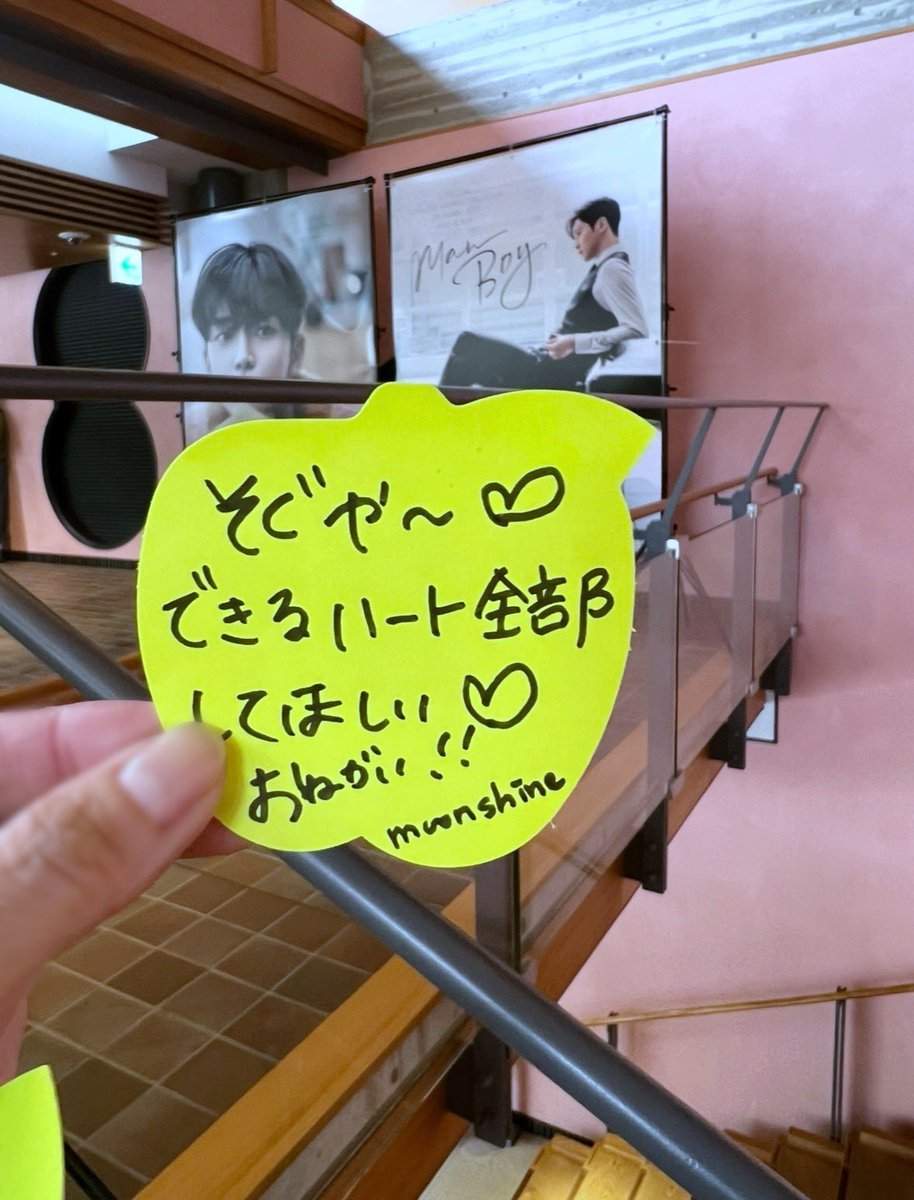 Man
Boy
そぐや〜♡
できるハート全部
してほしい♡
おねがい!!
moonshine